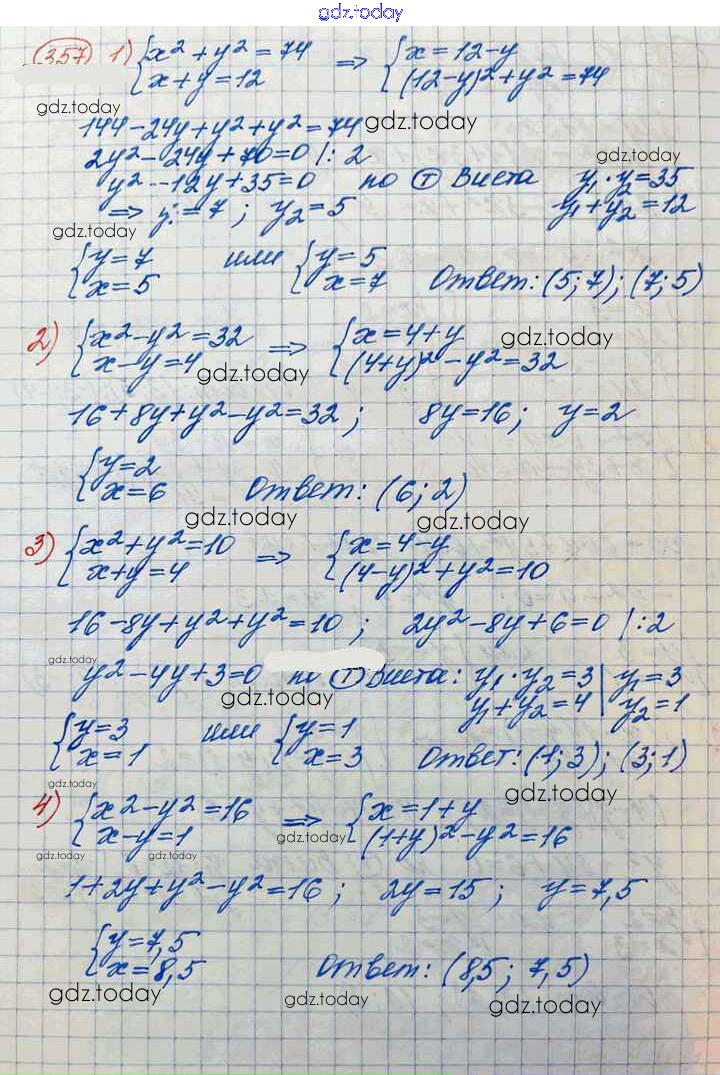 gdz.today
357) 1) {x² + y² = 74 => {x = 12 - y
x + y = 12 (12 - y)² + y² = 74
gdz.today
144 - 24y + y² + y² = 74 gdz.today
2y² - 24y + 70 = 0 /: 2 gdz.today
y² - 12y + 35 = 0 по Ⓣ Виета y₁ · y₂ = 35
=> y₁ = 7 ; y₂ = 5 y₁ + y₂ = 12
gdz.today
{y = 7 или {y = 5
x = 5 x = 7 Ответ: (5; 7); (7; 5)
2) {x² - y² = 32 => {x = 4 + y gdz.today
x - y = 4 (4 + y)² - y² = 32
gdz.today
16 + 8y + y² - y² = 32 ; 8y = 16 ; y = 2
{y = 2
x = 6 Ответ: (6; 2)
gdz.today gdz.today
3) {x² + y² = 10 => {x = 4 - y
x + y = 4 (4 - y)² + y² = 10
16 - 8y + y² + y² = 10 ; 2y² - 8y + 6 = 0 /: 2
gdz.today
y² - 4y + 3 = 0 по Ⓣ Виета: y₁ · y₂ = 3 | y₁ = 3
gdz.today y₁ + y₂ = 4 | y₂ = 1
{y = 3 или {y = 1
x = 1 x = 3 Ответ: (1; 3); (3; 1)
gdz.today gdz.today
4) {x² - y² = 16 => {x = 1 + y
x - y = 1 gdz.today (1 + y)² - y² = 16
gdz.today gdz.today
1 + 2y + y² - y² = 16 ; 2y = 15 ; y = 7,5
{y = 7,5
x = 8,5 Ответ: (8,5 ; 7,5)
gdz.today gdz.today gdz.today